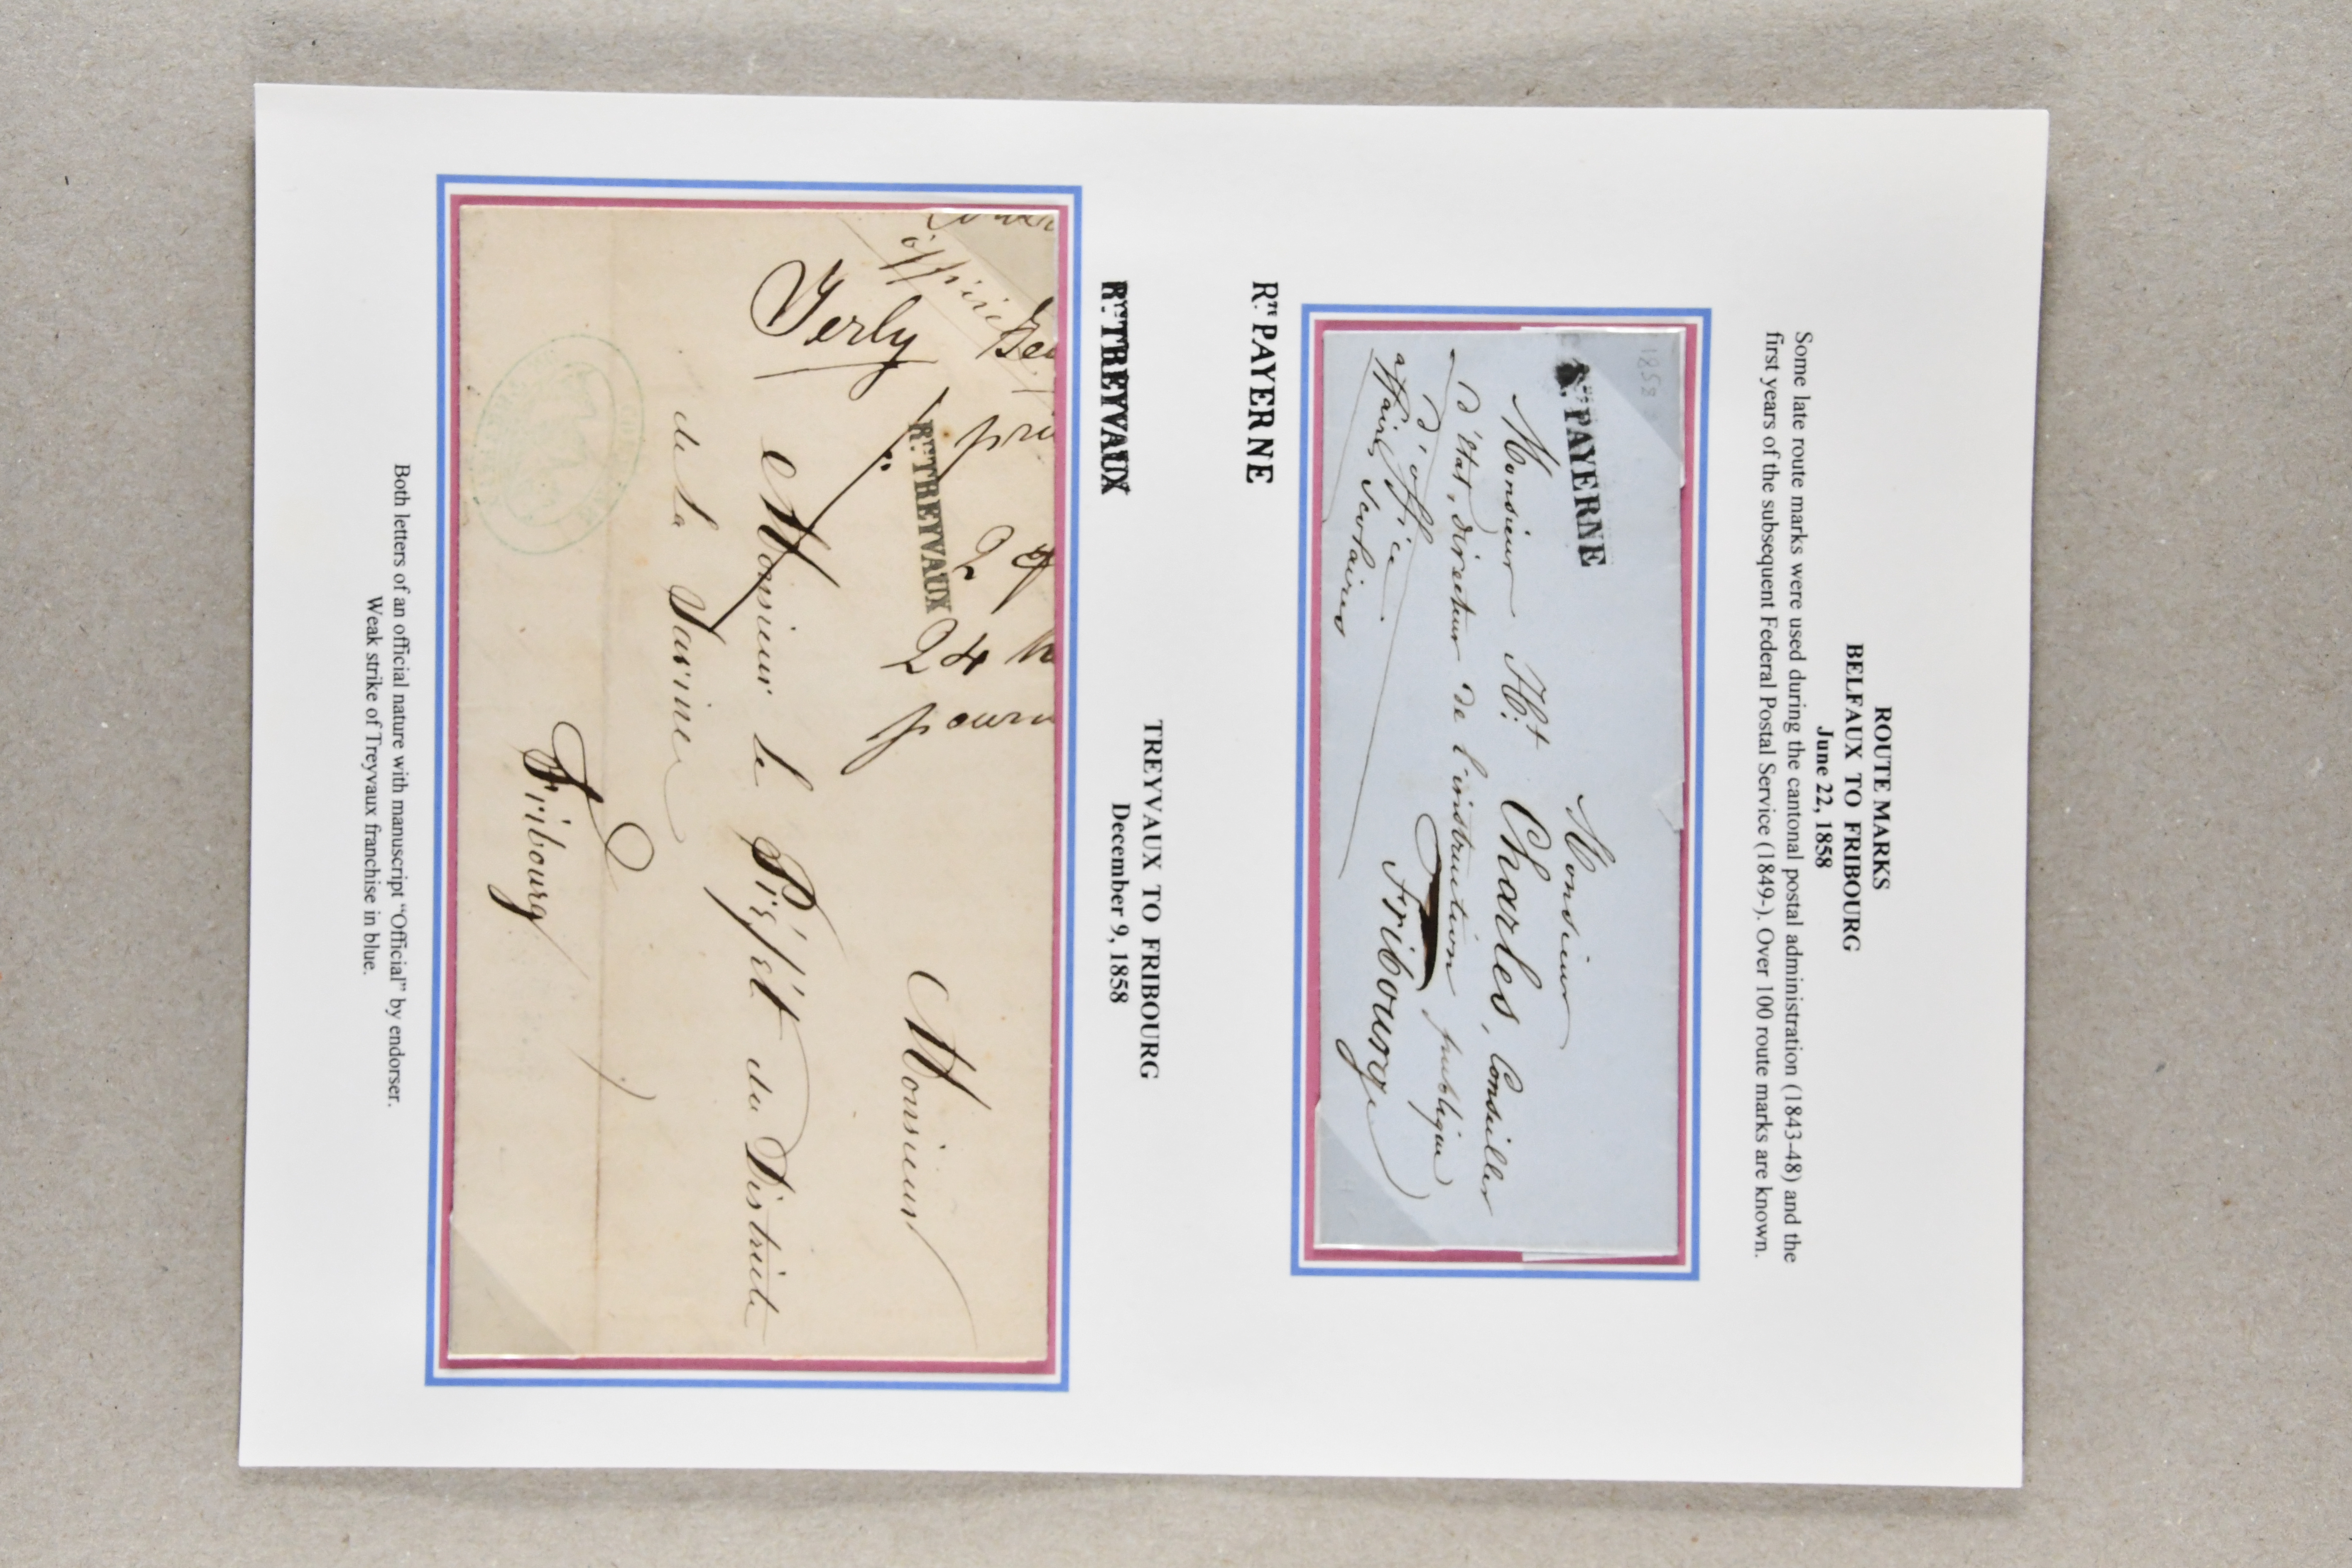 ROUTE MARKS
BELFAUX TO FRIBOURG
June 22, 1858
Some late route marks were used during the cantonal postal administration (1843-48) and the
first years of the subsequent Federal Postal Service (1849-). Over 100 route marks are known.
1858
PAYERNE
Monsieur
Monsieur Ht Charles, Conseiller
d'état, directeur de l'instruction publique
d'office
Fribourg
affaires scolaires
RTE PAYERNE
TREYVAUX TO FRIBOURG
December 9, 1858
RTE TREYVAUX
pour
24
2
RTE TREYVAUX
Monsieur
Yerly
Monsieur le Préfet du District
de la Sarine
Fribourg
Both letters of an official nature with manuscript “Official” by endorser.
Weak strike of Treyvaux franchise in blue.